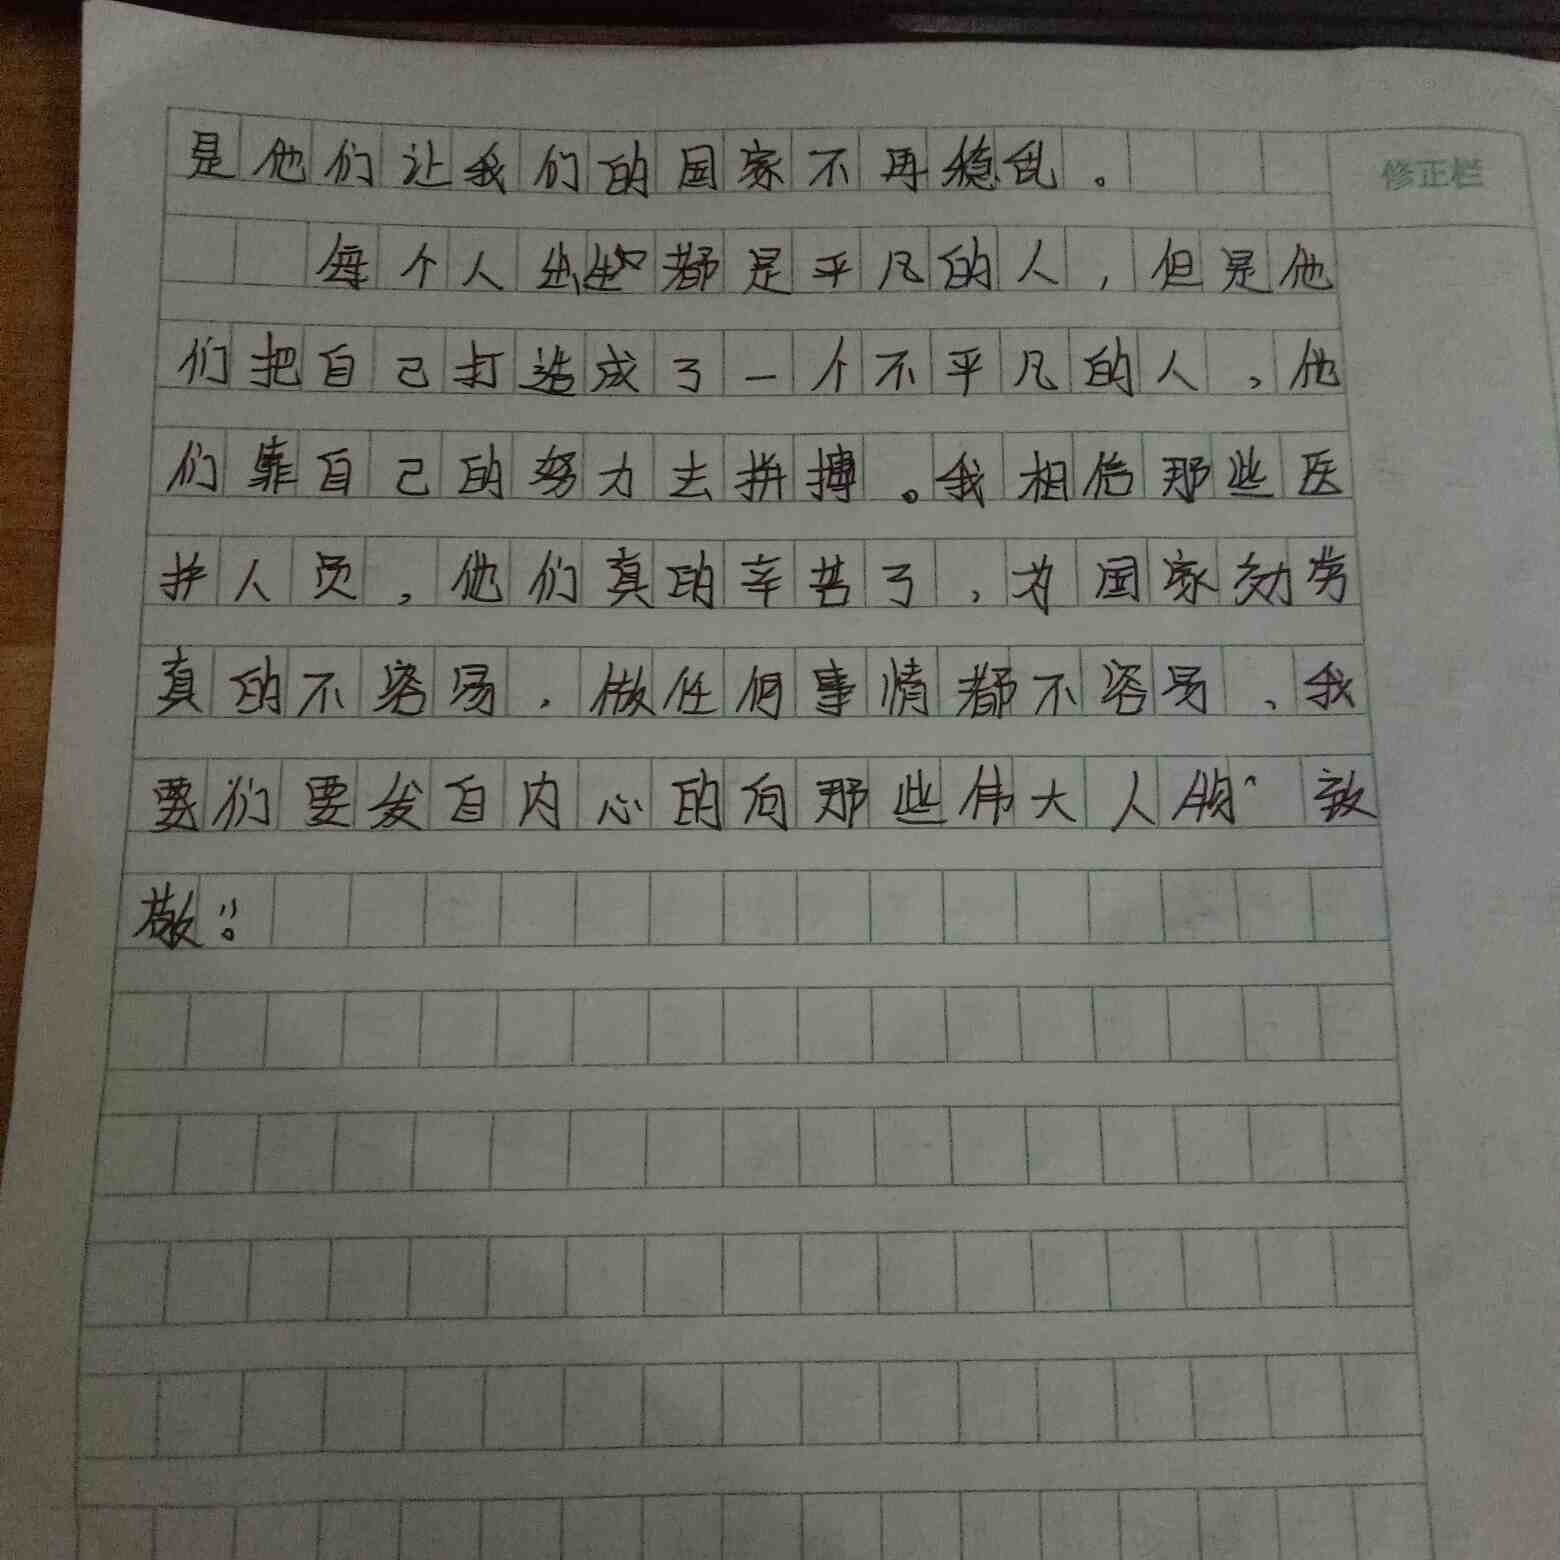 是他们让我们的国家不再稳乱。
修正栏
每个人出生都是平凡的人，但是他
们把自己打造成了一个不平凡的人，他
们靠自己的努力去拼搏。我相信那些医
护人员，他们真的辛苦了，为国家効劳
真的不容易，做任何事情都不容易、我
要们要发自内心的向那些伟大人物“致
敬”。